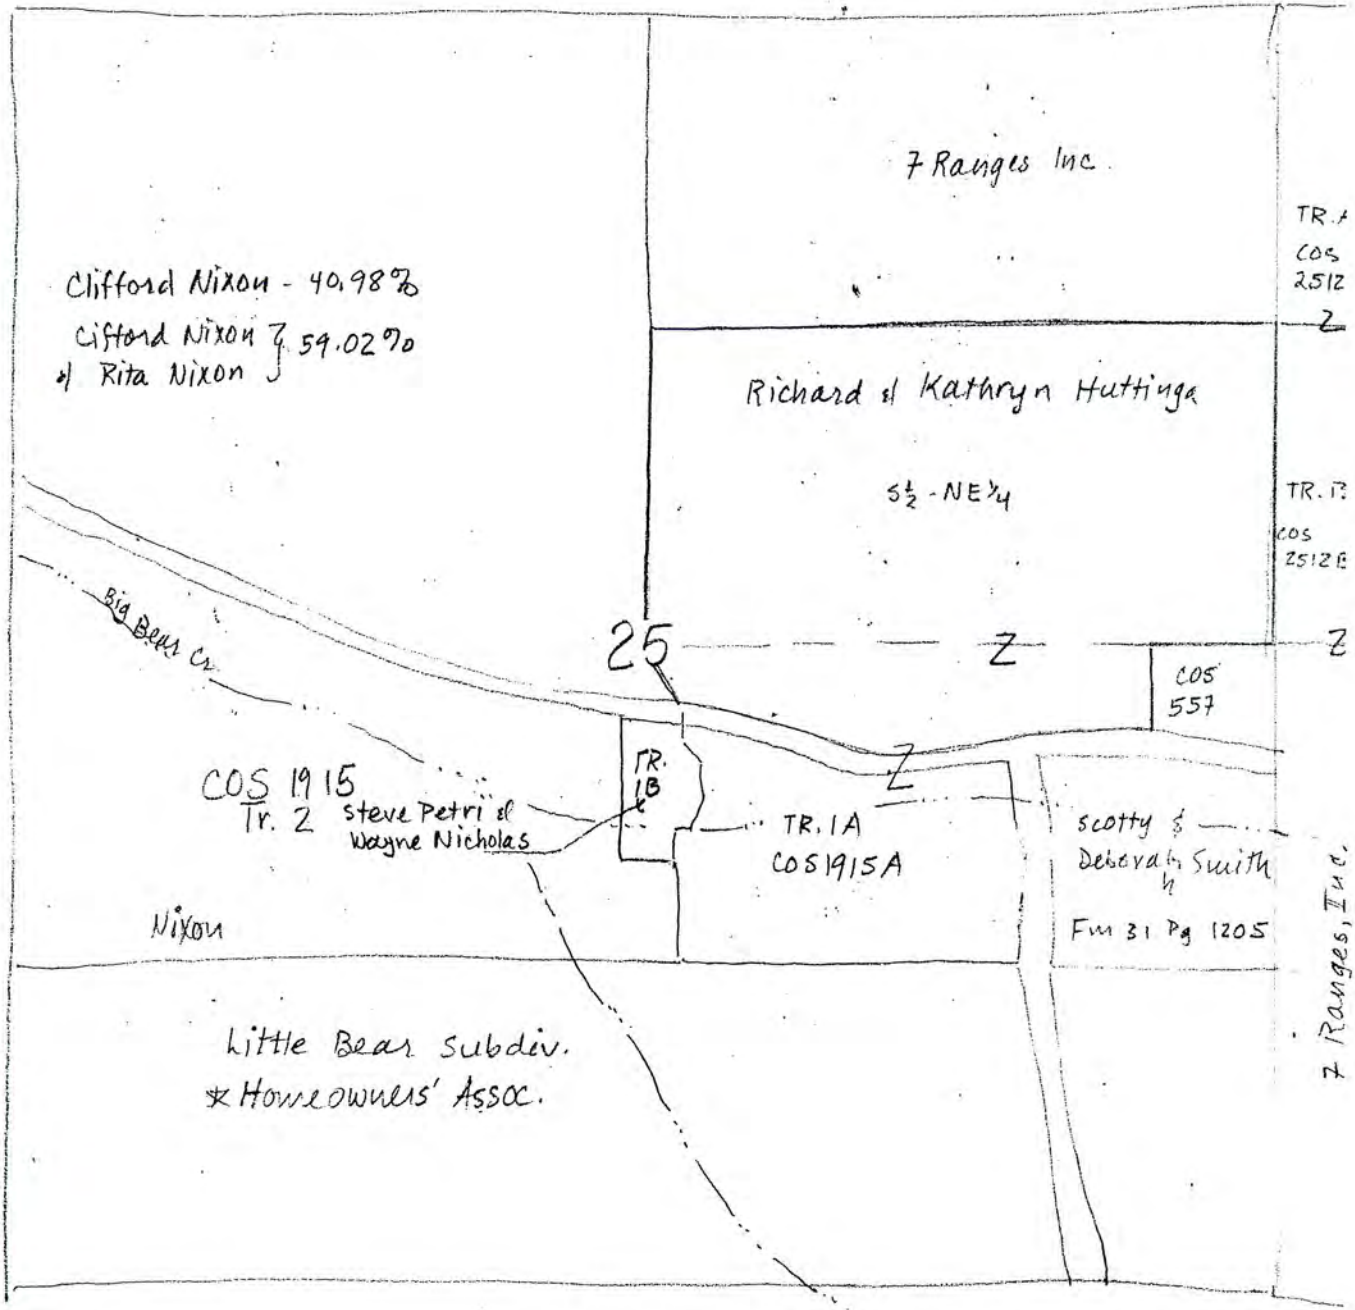 7 Ranges Inc.
TR. A
COS
2512
Z
Clifford Nixon - 40.98%
Cifford Nixon } 59.02%
& Rita Nixon
Richard & Kathryn Huttinga
S½ - NE¼
TR. B
COS
2512B
Big Bear Cr
25
Z
Z
COS
557
COS 1915
Tr. 2
Steve Petri &
Wayne Nicholas
TR.
1B
Z
TR. 1A
COS1915A
Scotty &
Deborah Smith
h
Fm 31 Pg 1205
Nixon
7 Ranges, Inc.
Little Bear Subdiv.
* Homeowners' Assoc.